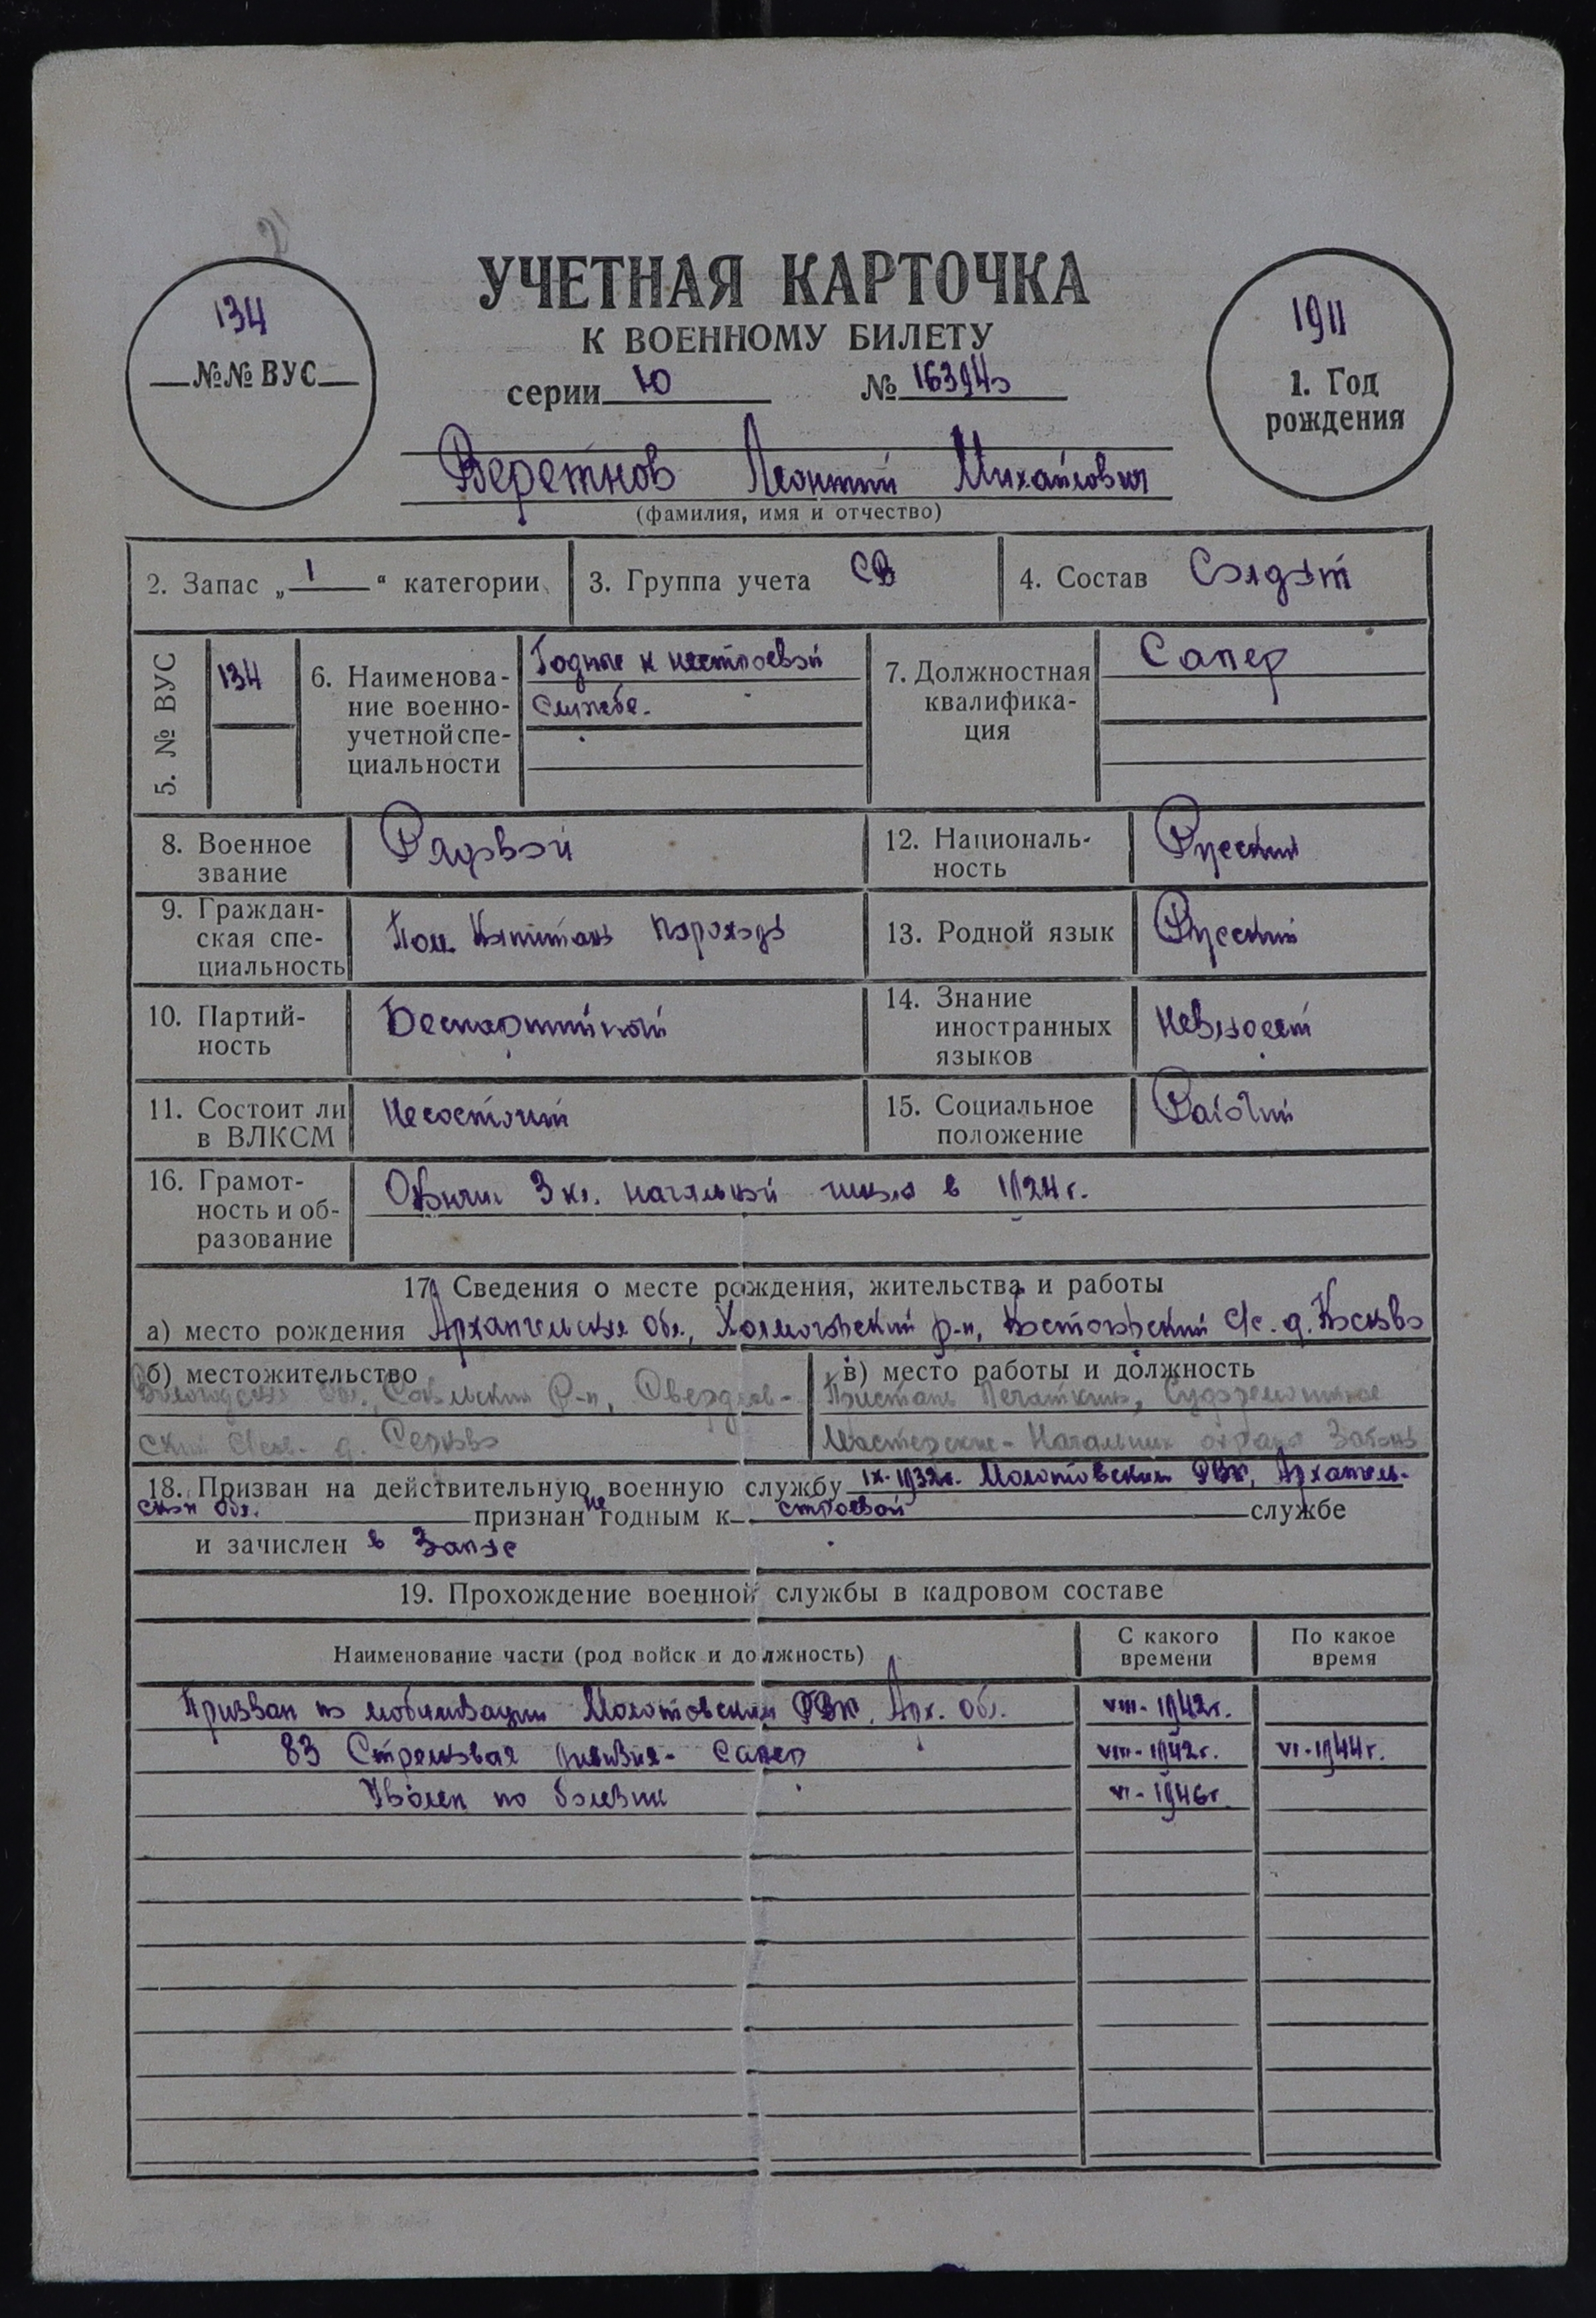 2
134
№№ ВУС
УЧЕТНАЯ КАРТОЧКА
К ВОЕННОМУ БИЛЕТУ
серии Ю № 163940
1911
1. Год
рождения
Веретнов Леонтий Михайлович
(фамилия, имя и отчество)
2. Запас „ 1 “ категории
3. Группа учета СВ
4. Состав Солдат
5. № ВУС 134
6. Наименова-
ние военно-
учетной спе-
циальности
Годные к нестроевой
службе.
7. Должностная
квалифика-
ция
Сапер
8. Военное
звание
Рядовой
12. Националь-
ность
Русский
9. Граждан-
ская спе-
циальность
Пом. Капитана парохода
13. Родной язык Русский
10. Партий-
ность
Беспартийный
14. Знание
иностранных
языков
невладеет
11. Состоит ли
в ВЛКСМ
Несостоит
15. Социальное
положение
Рабочий
16. Грамот-
ность и об-
разование
Окончил 3 кл. начальной школы в 1924 г.
17. Сведения о месте рождения, жительства и работы
а) место рождения Архангельская обл., Холмогорский р-н, С/с. д.
б) местожительство
Вологодская обл., р-н, Свердлов-
ский С/сов. д.
в) место работы и должность
Пристань Печаткино, Судоремонтные
Мастерские - Начальник охраны Затона
18. Призван на действительную военную службу IX-1932г. Молотовским РВК, Архангель-
ской обл. признан не годным к строевой службе
и зачислен в Запас
19. Прохождение военной службы в кадровом составе
Наименование части (род войск и должность)
С какого
времени
По какое
время
Призван по мобилизации Молотовским РВК, Арх. обл. VIII-1942г.
83 Стрелковая дивизия - Сапер VIII-1942г. VI-1944г.
Уволен по болезни VI-1946г.